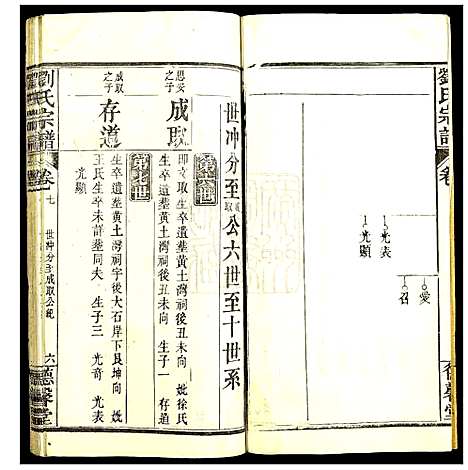 劉氏宗譜
卷
光表
光顯
愛
召
世冲分至 取 公六世至十世系
第六世
思妥之子
成取
即 文取生卒遺塟黄土灣祠後丑未向 妣徐氏
生卒遺塟黄土灣祠後丑未向 生子一 存道
第七世
成取之子
存道
生卒遺塟黄土灣祠字後大石岸下艮坤向 妣
王氏生卒未詳塟同夫 生子三 光奇 光表
光顯
劉氏宗譜
卷七
世冲分至成取公統
六
德馨堂